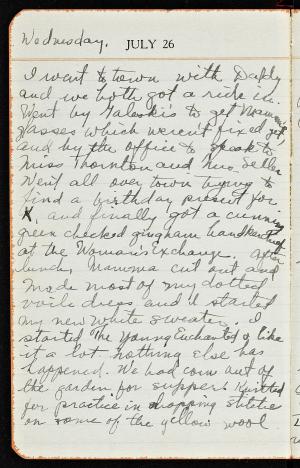 Wednesday.
JULY 26
I went to town with Daddy
and we both got a ride in.
Went by Galeski's to get Mamma's
glasses which weren't fixed yet,
and by the office to speak to
Miss Thornton and Mrs. Seller
Went all over town trying to
find a birthday present for
K, and finally got a cunning
green checked gingham handkerchief
at the Woman's Exchange. After
lunch, Mamma cut out and
made most of my dotted
voile dress and I started
my new white sweater. I
started The Young Enchanted & like
it a lot. Nothing else has
happened. We had corn out of
the garden for supper. I knitted
for practice in dropping stitches
on some of the yellow wool